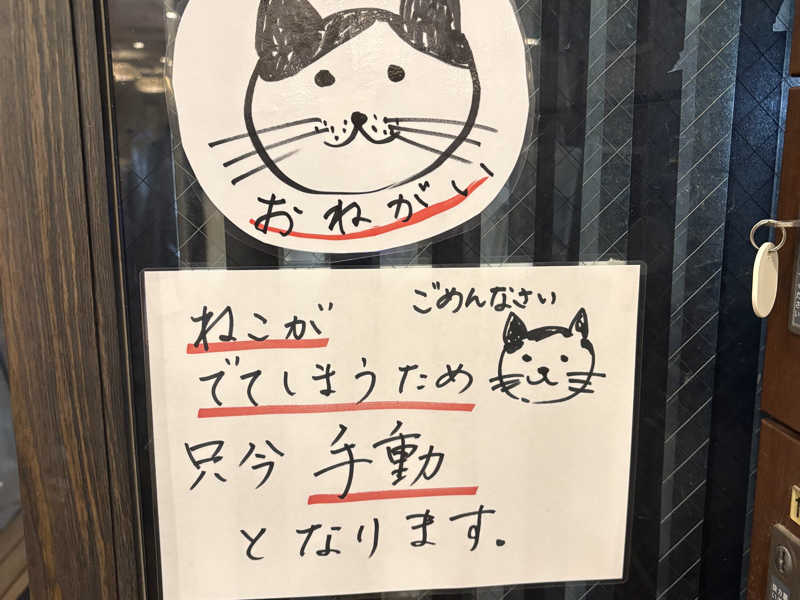 おねがい
ごめんなさい
ねこが
でてしまうため
只今 手動
となります。